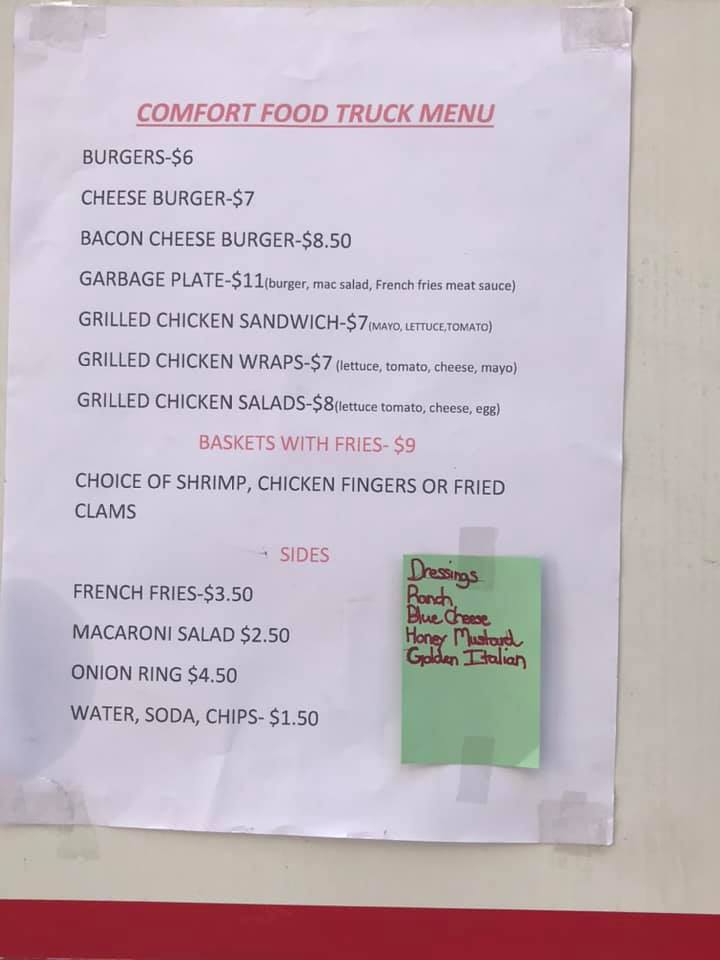 COMFORT FOOD TRUCK MENU
BURGERS-$6
CHEESE BURGER-$7
BACON CHEESE BURGER-$8.50
GARBAGE PLATE-$11(burger, mac salad, French fries meat sauce)
GRILLED CHICKEN SANDWICH-$7(MAYO, LETTUCE,TOMATO)
GRILLED CHICKEN WRAPS-$7 (lettuce, tomato, cheese, mayo)
GRILLED CHICKEN SALADS-$8(lettuce tomato, cheese, egg)
BASKETS WITH FRIES- $9
CHOICE OF SHRIMP, CHICKEN FINGERS OR FRIED
CLAMS
SIDES
FRENCH FRIES-$3.50
MACARONI SALAD $2.50
ONION RING $4.50
WATER, SODA, CHIPS- $1.50
Dressings
Ranch
Blue Cheese
Honey Mustard
Golden Italian